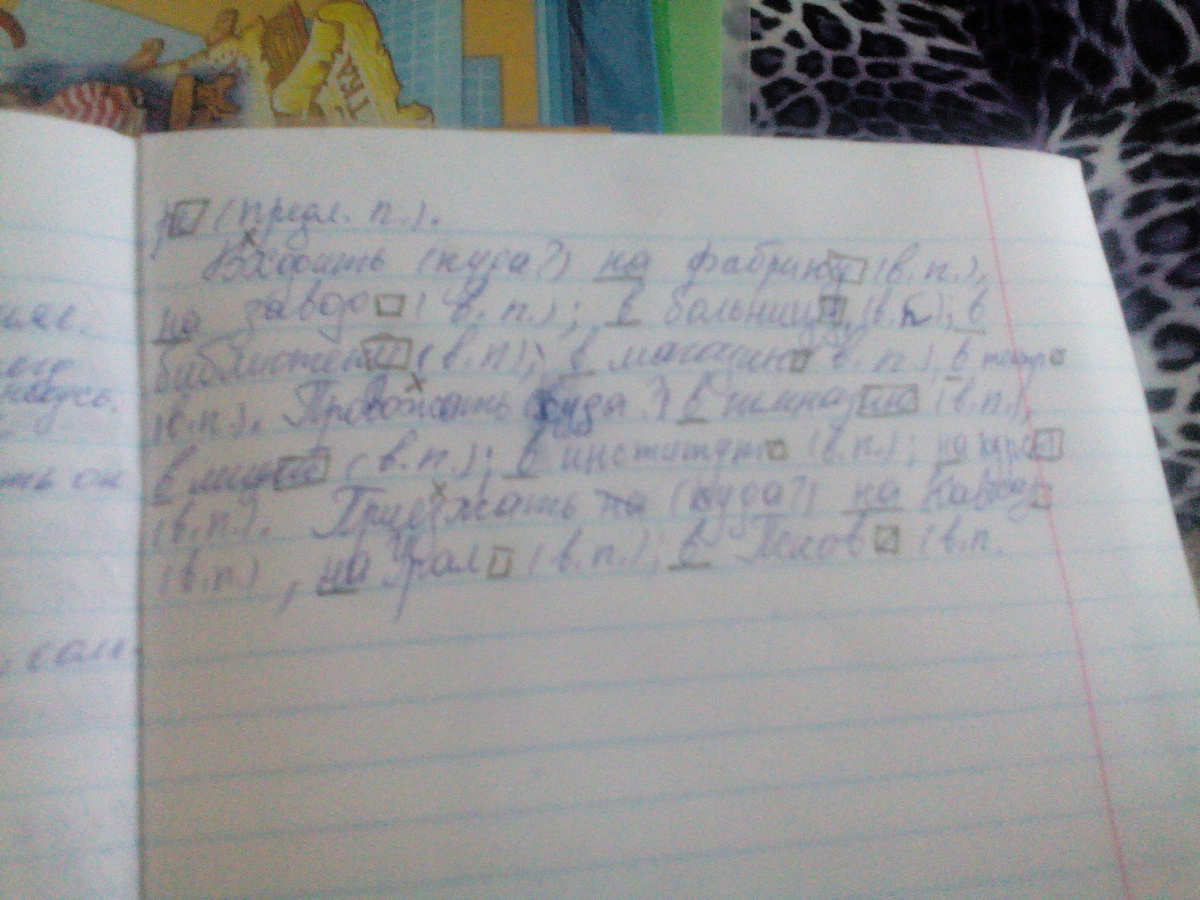 (предл. п.).
Входить (куда?) на фабрику (в.п.),
на завод (в. п.); в больницу (в.п.); в
библиотеку (в.п); в магазин (в. п.), в театр
(в.п.). Провожать (куда?) в гимназию (в.п.),
в лицей (в.п.); в институт (в.п.); на курсы
(в.п.). Приезжать (куда?) на Кавказ
(в.п), на Урал (в.п.); в Псков (в.п.